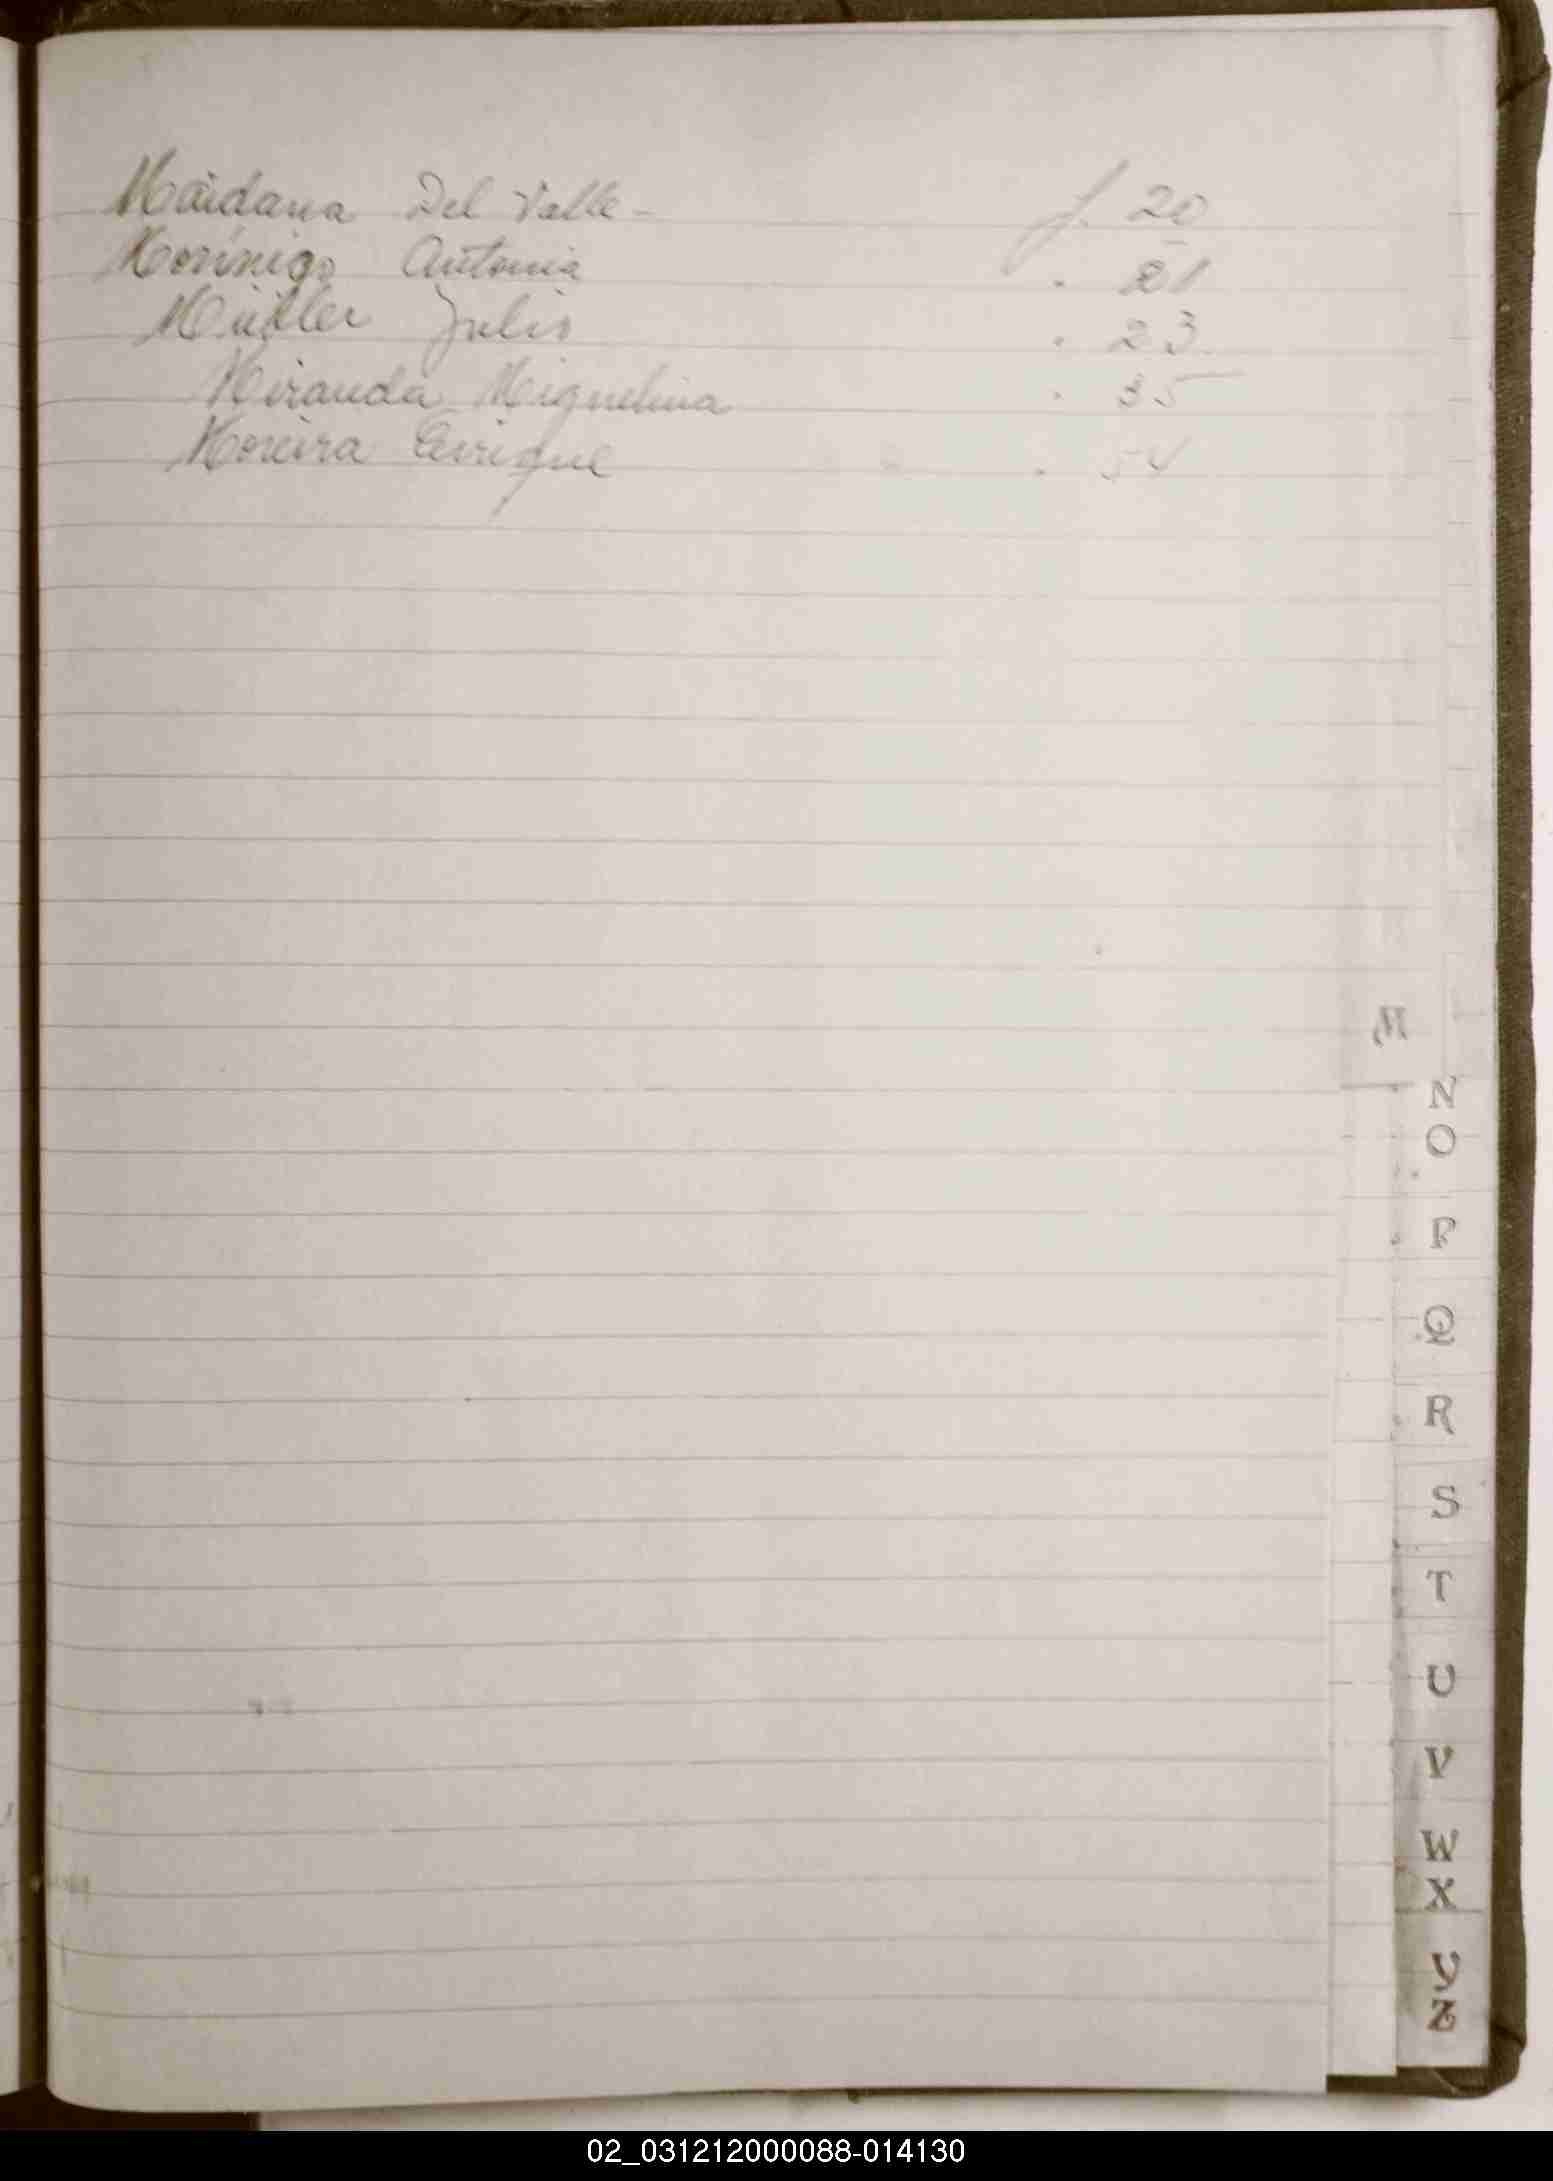 Maidana Del Valle - f. 20
Morínigo Antonia . 21
Müller Julio . 23
Miranda Miguelina . 35
Moreira Enrique . 54
M
N
O
P
Q
R
S
T
U
V
W
X
Y
Z
02_031212000088-014130